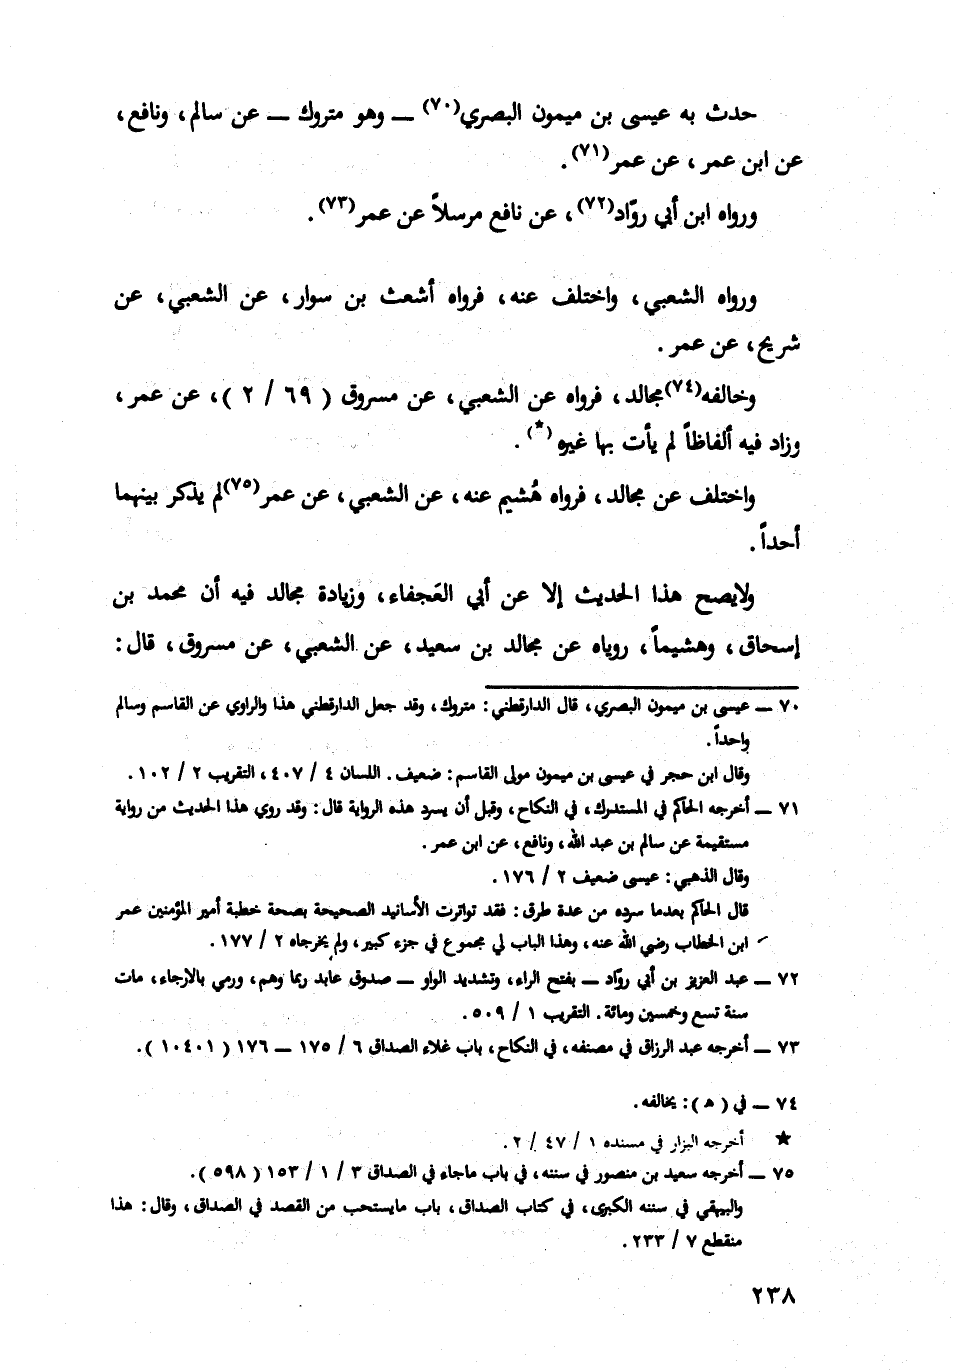 حدث به عيسى بن ميمون البصري(٧٠) ــ وهو متروك ــ عن سالم، ونافع،
عن ابن عمر، عن عمر(٧١).
ورواه ابن أبي روّاد(٧٢)، عن نافع مرسلاً عن عمر(٧٣).
ورواه الشعبي، واختلف عنه، فرواه أشعث بن سوار، عن الشعبي، عن
شريح، عن عمر.
وخالفه(٧٤) مجالد، فرواه عن الشعبي، عن مسروق (٦٩ / ٢)، عن عمر،
وزاد فيه ألفاظاً لم يأت بها غيره(★).
واختلف عن مجالد، فرواه هُشيم عنه، عن الشعبي، عن عمر(٧٥) لم يذكر بينهما
أحداً.
ولايصح هذا الحديث إلا عن أبي العَجفاء، وزيادة مجالد فيه أن محمد بن
إسحاق، وهشيماً، روياه عن مجالد بن سعيد، عن الشعبي، عن مسروق، قال:
٧٠ ــ عيسى بن ميمون البصري، قال الدارقطني: متروك، وقد جعل الدارقطني هذا والراوي عن القاسم وسالم
واحداً.
وقال ابن حجر في عيسى بن ميمون مولى القاسم: ضعيف. اللسان ٤ / ٤٠٧، التقريب ٢ / ١٠٢.
٧١ ــ أخرجه الحاكم في المستدرك، في النكاح، وقبل أن يسرد هذه الرواية قال: وقد روي هذا الحديث من رواية
مستقيمة عن سالم بن عبد الله، ونافع، عن ابن عمر.
وقال الذهبي: عيسى ضعيف ٢ / ١٧٦.
قال الحاكم بعدما سرده من عدة طرق: فقد تواترت الأسانيد الصحيحة بصحة خطبة أمير المؤمنين عمر
ابن الخطاب رضي الله عنه، وهذا الباب لي مجموع في جزء كبير، ولم يخرجاه ٢ / ١٧٧.
٧٢ ــ عبد العزيز بن أبي روّاد ــ بفتح الراء، وتشديد الواو ــ صدوق عابد ربما وهم، ورمي بالارجاء، مات
سنة تسع وخمسين ومائة. التقريب ١ / ٥٠٩.
٧٣ ــ أخرجه عبد الرزاق في مصنفه، في النكاح، باب غلاء الصداق ٦ / ١٧٥ ــ ١٧٦ (١٠٤٠١).
٧٤ ــ في (هـ): يخالفه.
★ أخرجه البزار في مسنده ١ / ٤٧ / ٢.
٧٥ ــ أخرجه سعيد بن منصور في سننه، في باب ماجاء في الصداق ٣ / ١ / ١٥٣ (٥٩٨).
والبيهقي في سننه الكبرى، في كتاب الصداق، باب مايستحب من القصد في الصداق، وقال: هذا
منقطع ٧ / ٢٣٣.
٢٣٨